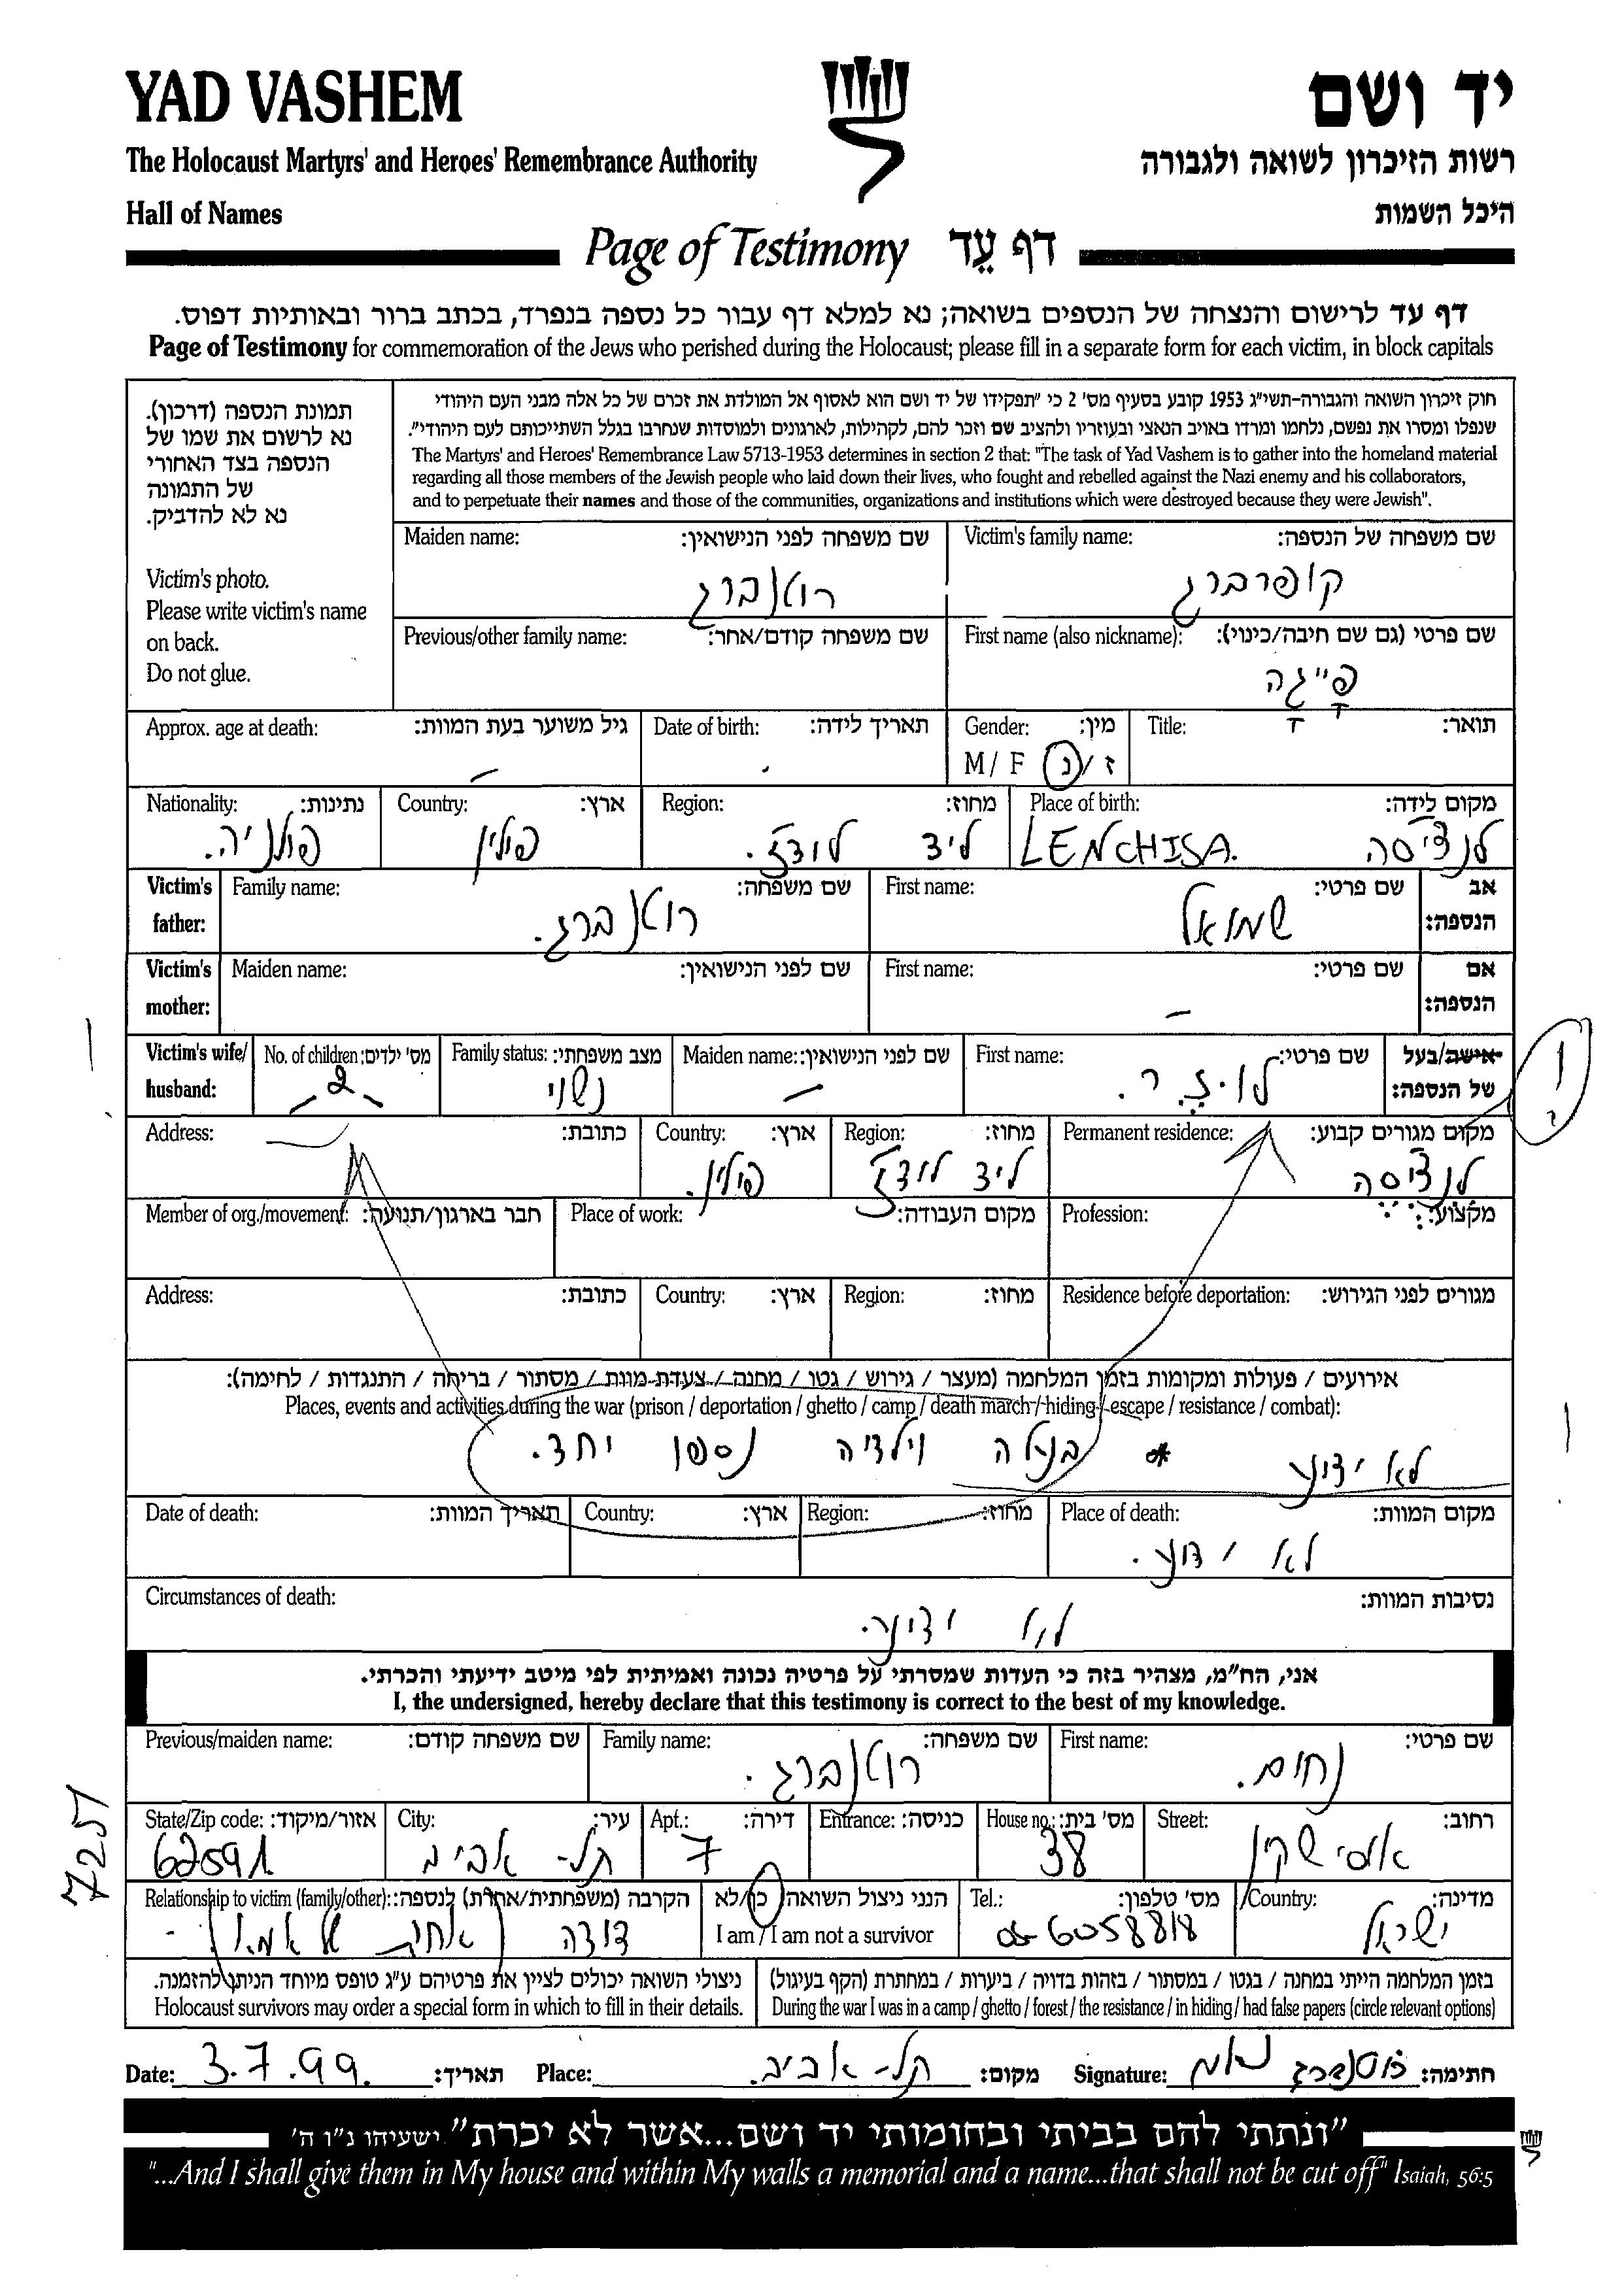 YAD VASHEM
יד ושם
The Holocaust Martyrs' and Heroes' Remembrance Authority
רשות הזיכרון לשואה ולגבורה
Hall of Names
היכל השמות
Page of Testimony דף עֵד
דף עד לרישום והנצחה של הנספים בשואה; נא למלא דף עבור כל נספה בנפרד, בכתב ברור ובאותיות דפוס.
Page of Testimony for commemoration of the Jews who perished during the Holocaust; please fill in a separate form for each victim, in block capitals
תמונת הנספה (דרכון).
נא לרשום את שמו של
הנספה בצד האחורי
של התמונה
נא לא להדביק.
Victim's photo.
Please write victim's name
on back.
Do not glue.
חוק זיכרון השואה והגבורה-תשי"ג 1953 קובע בסעיף מס' 2 כי "תפקידו של יד ושם הוא לאסוף אל המולדת את זכרם של כל אלה מבני העם היהודי
שנפלו ומסרו את נפשם, נלחמו ומרדו באויב הנאצי ובעוזריו ולהציב שם וזכר להם, לקהילות, לארגונים ולמוסדות שנחרבו בגלל השתייכותם לעם היהודי".
The Martyrs' and Heroes' Remembrance Law 5713-1953 determines in section 2 that: "The task of Yad Vashem is to gather into the homeland material
regarding all those members of the Jewish people who laid down their lives, who fought and rebelled against the Nazi enemy and his collaborators,
and to perpetuate their names and those of the communities, organizations and institutions which were destroyed because they were Jewish".
Victim's family name: שם משפחה של הנספה:
קופרברג
Maiden name: שם משפחה לפני הנישואין:
רוטנברג
First name (also nickname): שם פרטי (גם שם חיבה/כינוי):
פייגה
Previous/other family name: שם משפחה קודם/אחר:
Title: תואר:
Gender: מין:
M / F ז/נ
Date of birth: תאריך לידה:
Approx. age at death: גיל משוער בעת המוות:
Place of birth: מקום לידה:
LENCHISA. לנצ'יסה
Region: מחוז:
ליד לודז'.
Country: ארץ:
פולין
Nationality: נתינות:
פולניה.
Victim's father: אב הנספה:
First name: שם פרטי:
שמואל
Family name: שם משפחה:
רוטנברג.
Victim's mother: אם הנספה:
First name: שם פרטי:
-
Maiden name: שם לפני הנישואין:
Victim's wife/husband: אישה/בעל של הנספה:
First name: שם פרטי:
Maiden name: שם לפני הנישואין:
-
Family status: מצב משפחתי:
נשוי
No. of children: מס' ילדים:
- 2 -
Permanent residence: מקום מגורים קבוע:
לנצ'יסה
Region: מחוז:
ליד לודז'
Country: ארץ:
פולין.
Address: כתובת:
Profession: מקצוע:
Place of work: מקום העבודה:
Member of org./movement: חבר בארגון/תנועה:
Residence before deportation: מגורים לפני הגירוש:
Region: מחוז:
Country: ארץ:
Address: כתובת:
אירועים / פעולות ומקומות בזמן המלחמה (מעצר / גירוש / גטו / מחנה / צעדת מוות / מסתור / בריחה / התנגדות / לחימה):
Places, events and activities during the war (prison / deportation / ghetto / camp / death march / hiding / escape / resistance / combat):
לא ידוע * בעלה וילדיה נספו יחד.
Place of death: מקום המוות:
לא ידוע.
Region: מחוז:
Country: ארץ:
Date of death: תאריך המוות:
Circumstances of death: נסיבות המוות:
לא ידוע.
אני, הח"מ, מצהיר בזה כי העדות שמסרתי על פרטיה נכונה ואמיתית לפי מיטב ידיעתי והכרתי.
I, the undersigned, hereby declare that this testimony is correct to the best of my knowledge.
First name: שם פרטי:
נחום.
Family name: שם משפחה:
רוטנברג.
Previous/maiden name: שם משפחה קודם:
Street: רחוב:
אוסישקין
House no.: מס' בית:
38
Entrance: כניסה:
Apt.: דירה:
7
City: עיר:
תל-אביב
State/Zip code: אזור/מיקוד:
62591
7251
Country: מדינה:
ישראל
Tel.: מס' טלפון:
6058818
הנני ניצול השואה: כן/לא
I am / I am not a survivor
Relationship to victim (family/other): הקרבה (משפחתית/אחרת) לנספה:
דודה (אחות של אמא)
בזמן המלחמה הייתי במחנה / בגטו / במסתור / בזהות בדויה / ביערות / במחתרת (הקף בעיגול)
During the war I was in a camp / ghetto / forest / the resistance / in hiding / had false papers (circle relevant options)
ניצולי השואה יכולים לציין את פרטיהם ע"ג טופס מיוחד הניתן להזמנה.
Holocaust survivors may order a special form in which to fill in their details.
Date: 3.7.99. תאריך:
Place: תל-אביב. מקום:
Signature: רוטנברג נחום חתימה:
"ונתתי להם בביתי ובחומותי יד ושם...אשר לא יכרת" ישעיהו נ"ו ה'
"...And I shall give them in My house and within My walls a memorial and a name...that shall not be cut off" Isaiah, 56:5